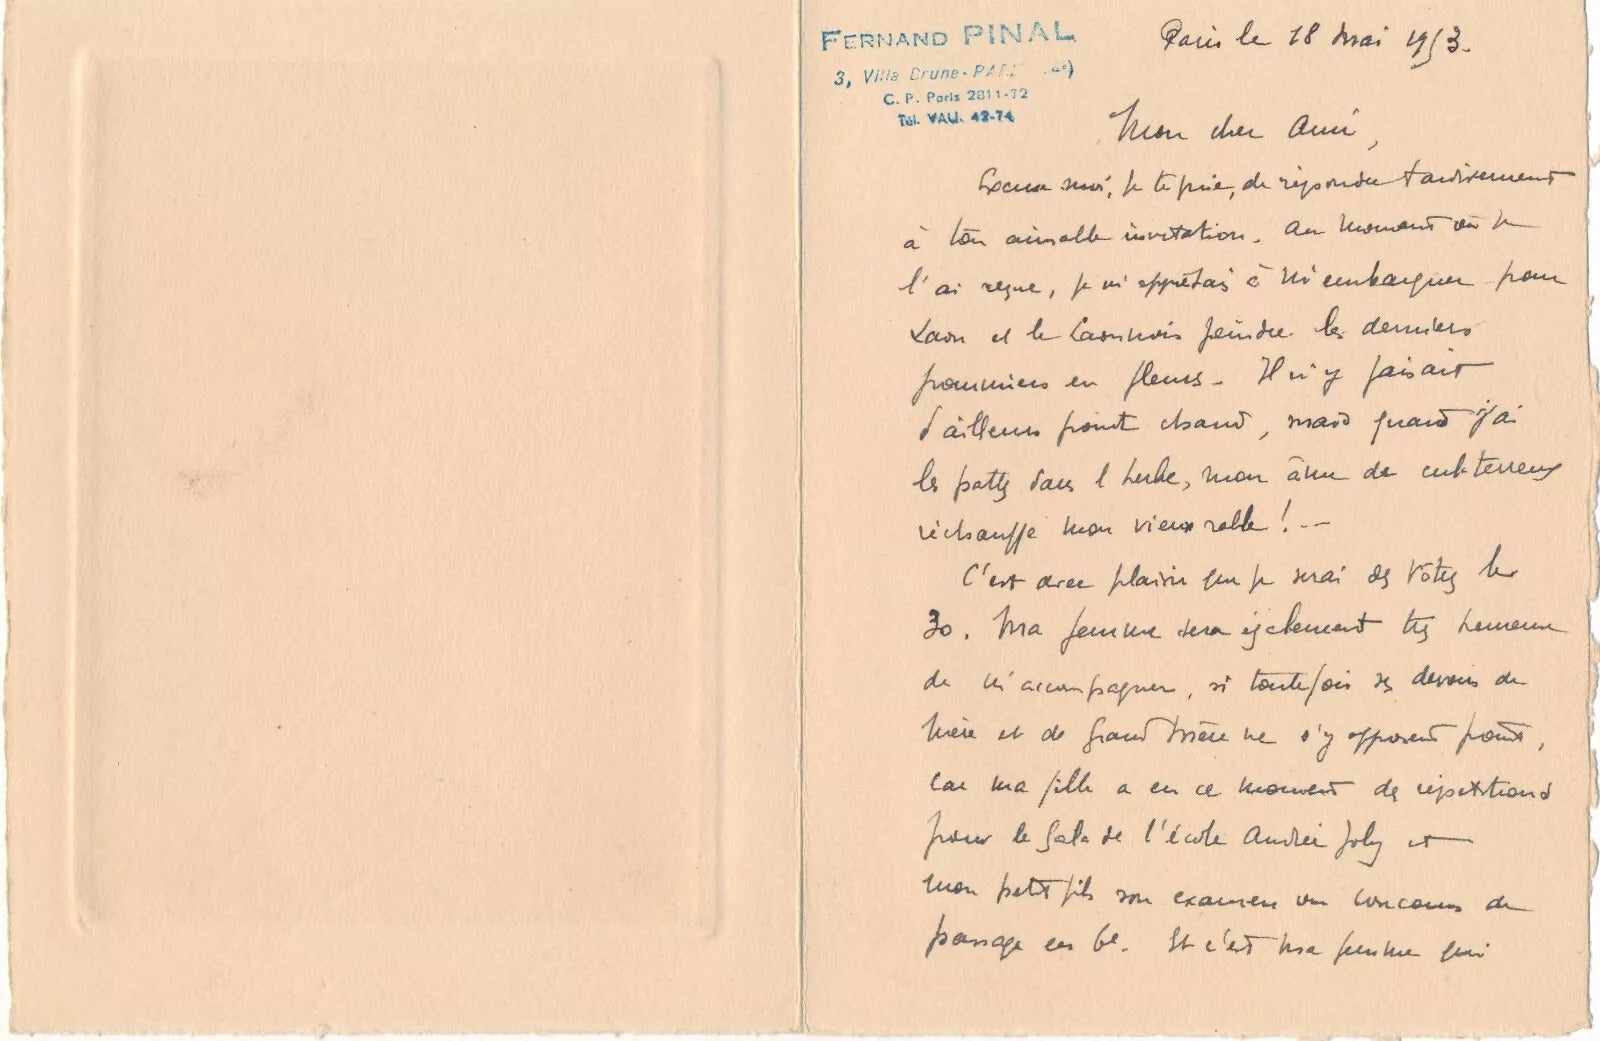 FERNAND PINAL
3, Villa Brune - PARIS 4e)
C. P. Paris 2811-72
Tél. VAU. 43-74
Paris le 18 mai 1953.
Mon cher Ami,
Excuse moi, je te prie, de répondre tardivement
à ton aimable invitation. Au moment où je
l'ai reçue, je m'apprêtais à m'embarquer pour
Laon et le Laonnois peindre les derniers
pommiers en fleurs. Il n'y faisait
d'ailleurs point chaud, mais quand j'ai
les pattes dans l'herbe, mon âme de cul-terreux
réchauffe mon vieux rable ! ..
C'est avec plaisir que je serai des vôtres le
30. Ma femme sera également très heureuse
de m'accompagner, si toutefois ses devoirs de
mère et de Grand Mère ne s'y opposent point,
car ma fille a en ce moment des répétitions
pour le Gala de l'école Andrée Joly et
mon petit fils son examen ou concours de
passage en 6e. Et c'est ma femme qui